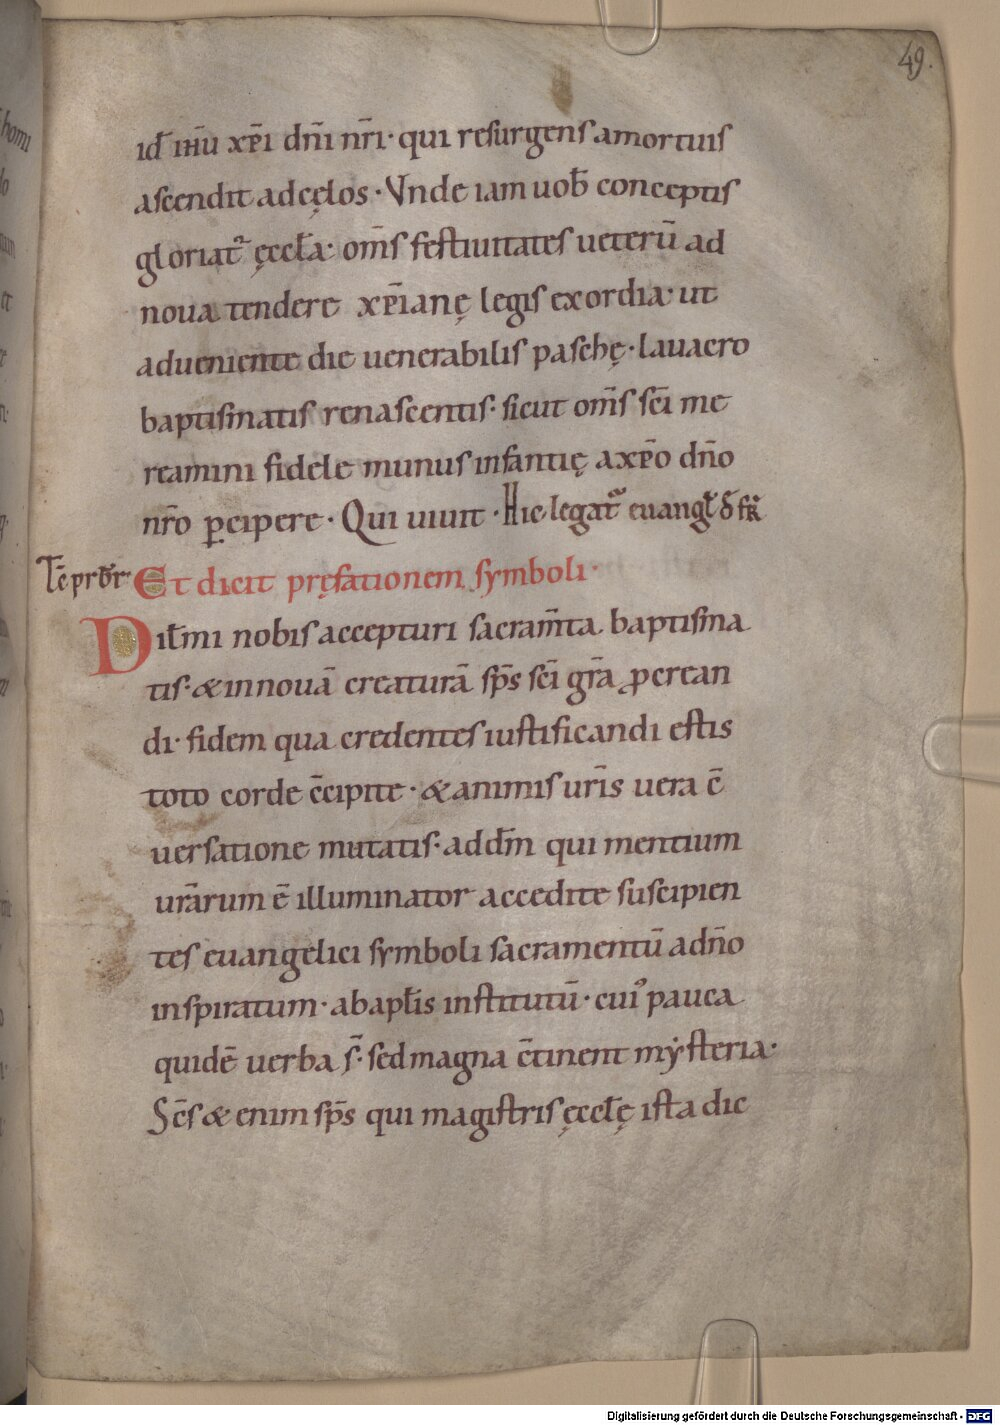 49.
id̄ ih̄u xp̄i dn̄i nr̄i · qui resurgens amortuis
ascendit adcęlos · Vnde iam uob̄ conceptis
gloriat᷑ ęccl̄a · om̄s festiuitates ueterū ad
noua tendere xp̄ianę legis exordia · ut
adueniente die uenerabilis paschę · lauacro
baptismatis renascentis · sicut om̄s sc̄i me
reamini fidele munus infantię axp̄o dn̄o
nr̄o ꝑcipere · Qui uiuit · Hic legat᷑ euangl̄
Et dicit pręfationem symboli ·
Dil̄mi nobis accepturi sacram̄ta baptisma
tis · &innouā creaturā sp̄s sc̄i gr̄a ꝓcrean
di · fidem qua credentes iustificandi estis
toto corde c̄cipite · &animis ur̄is uera c̄
uersatione mutatis · addm̄ qui mentium
ur̄arum ē illuminator accedite suscipien
tes euangelici symboli sacramentū adn̄o
inspiratum · abapl̄is institutū · cuiꝰ pauca
quidē uerba s̄ · sedmagna c̄tinent mẏsteria ·
Sc̄s & enim sp̄s qui magistris ęccl̄ę ista dic
Digitalisierung gefördert durch die Deutsche Forschungsgemeinschaft - DFG